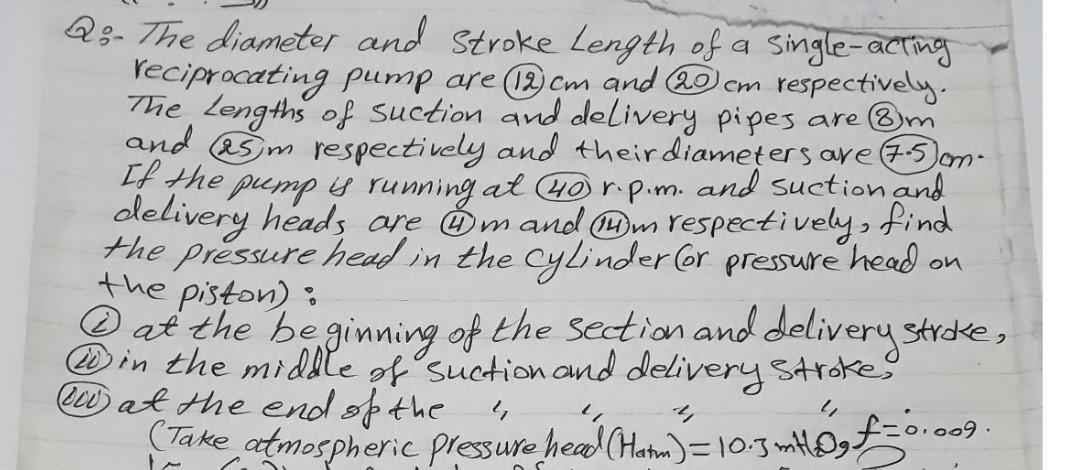 Q:- The diameter and stroke Length of a single-acting
reciprocating pump are 12 cm and 20 cm respectively.
The Lengths of suction and delivery pipes are 8 m
and 25 m respectively and their diameters are 7.5 cm.
If the pump is running at 40 r.p.m. and suction and
delivery heads are 4 m and 14 m respectively, find
the pressure head in the cylinder (or pressure head on
the piston) :
(i) at the beginning of the section and delivery stroke,
(ii) in the middle of suction and delivery stroke,
(iii) at the end of the " " " "
(Take atmospheric pressure head (Hatm) = 10.3 mH2O, f=0.009.